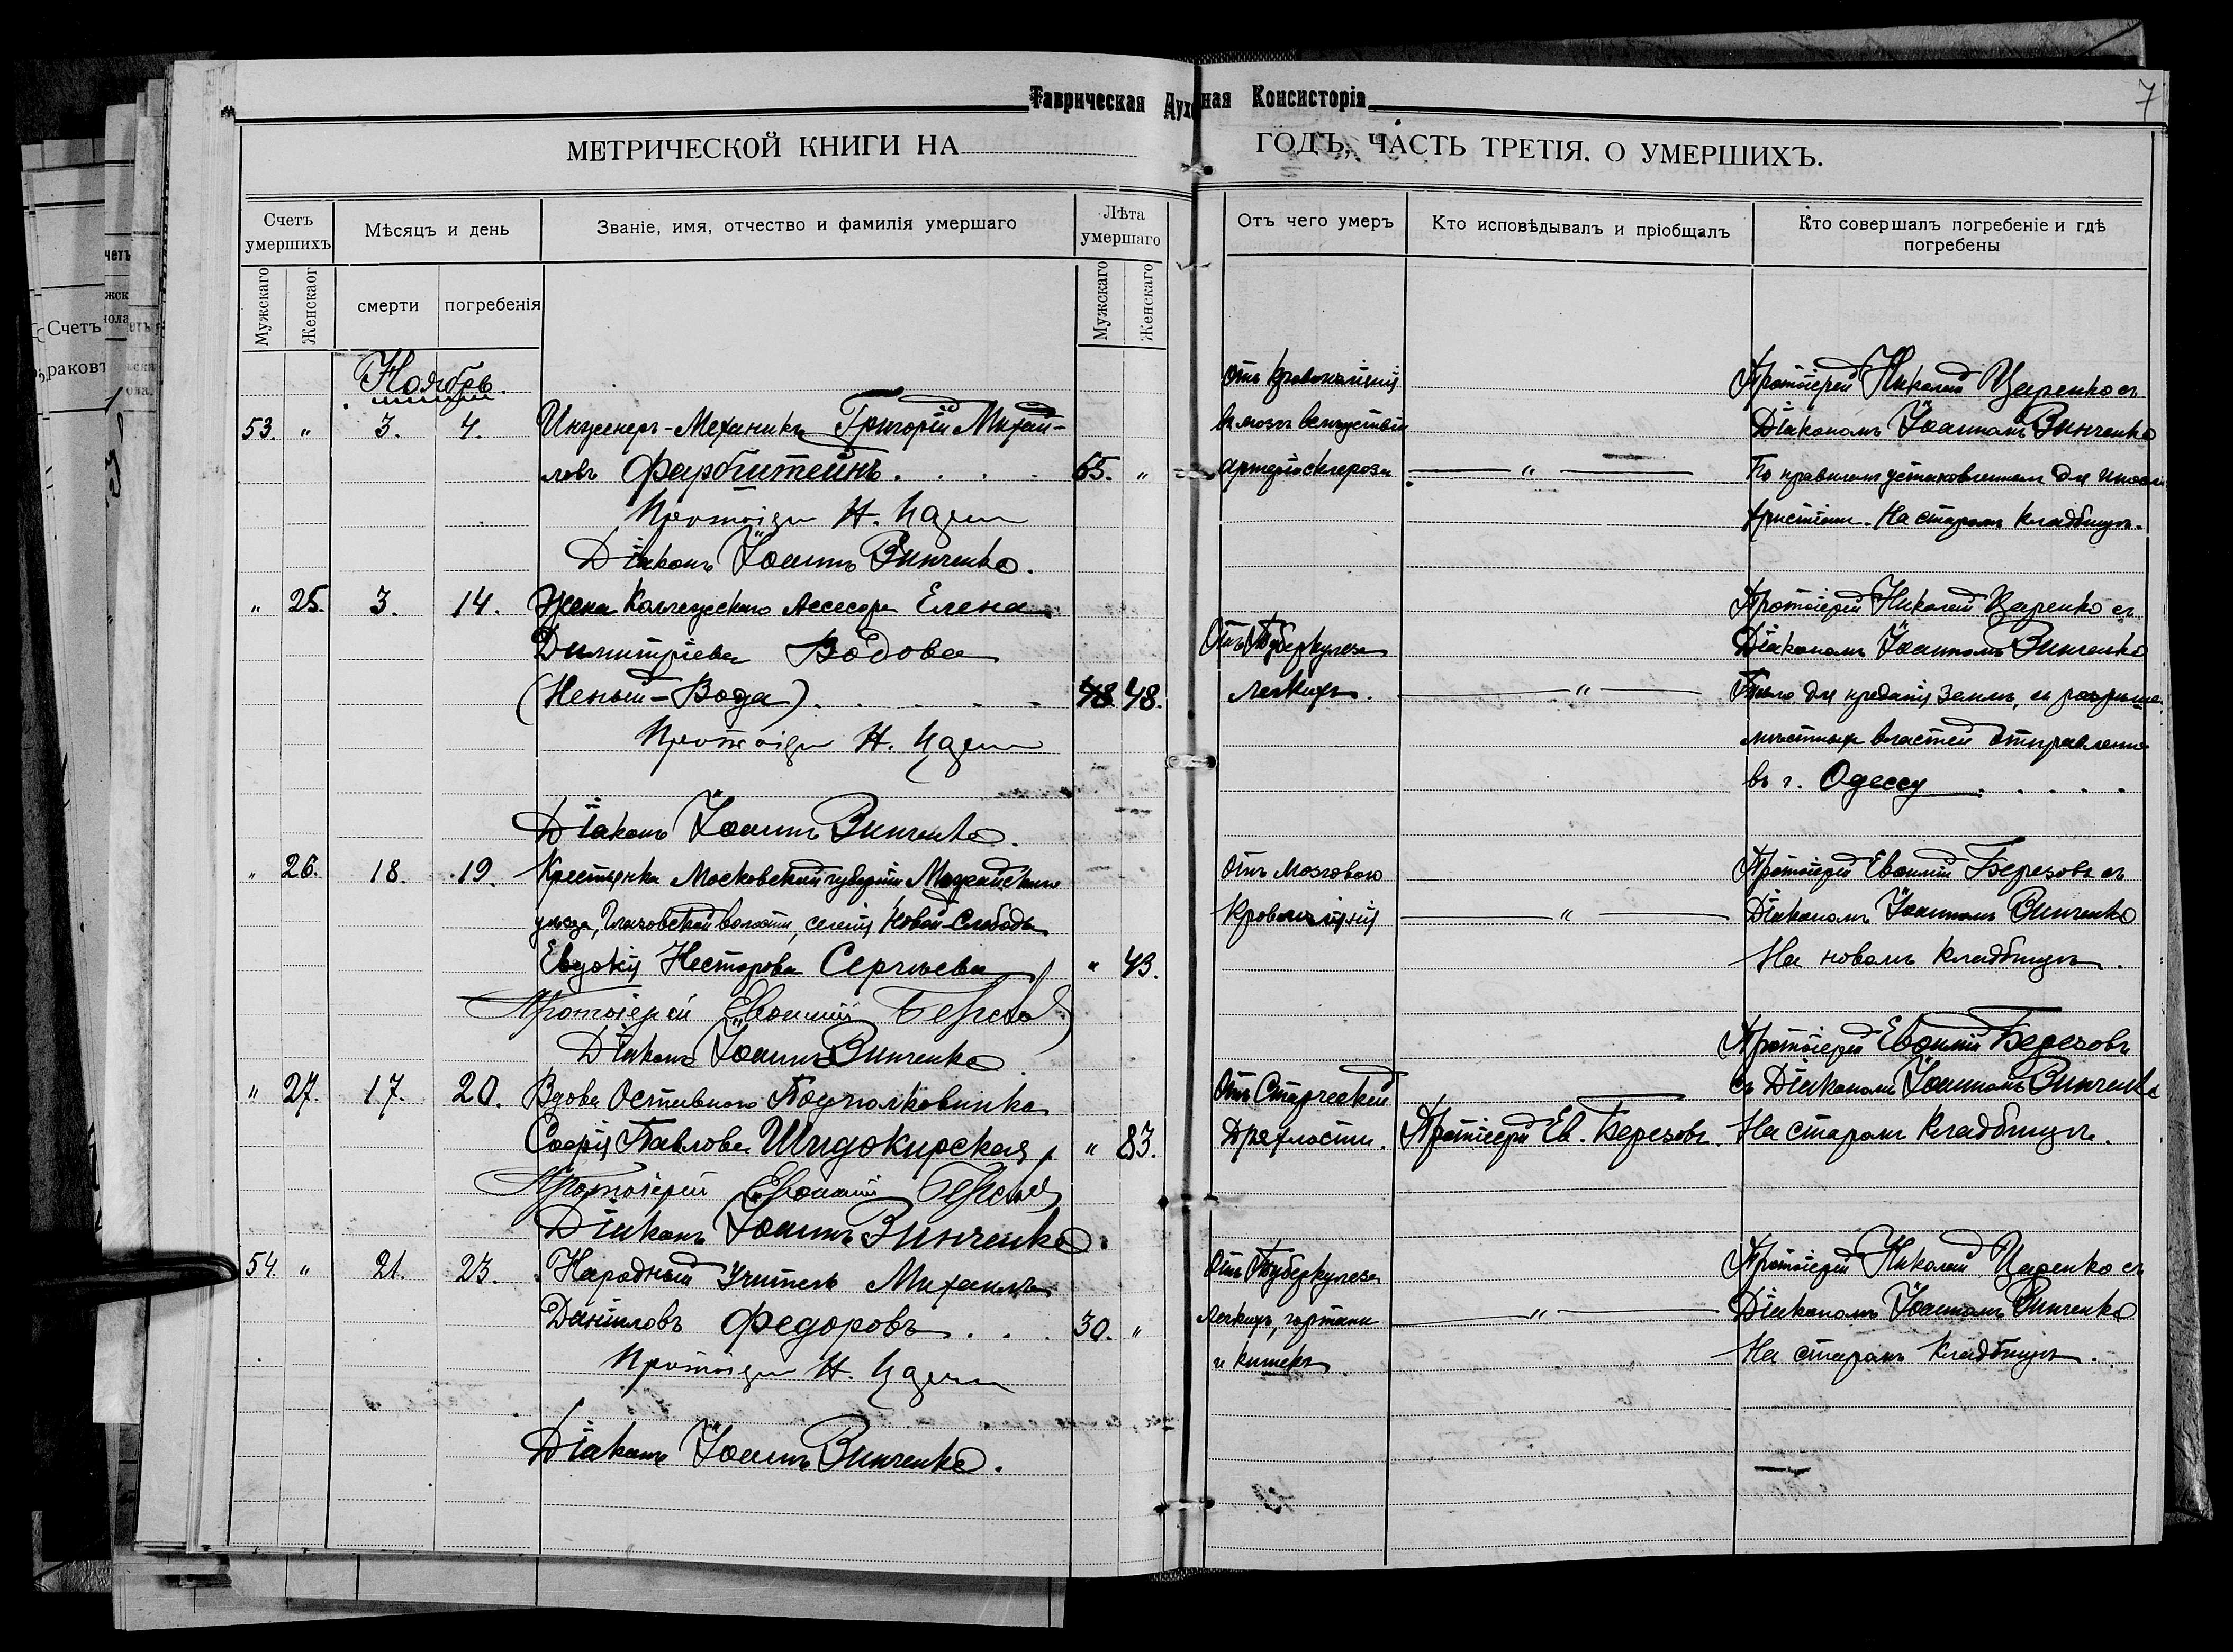 Таврическая Духовная Консисторія
7
МЕТРИЧЕСКОЙ КНИГИ НА
ГОДЪ, ЧАСТЬ ТРЕТІЯ. О УМЕРШИХЪ.
Счетъ умершихъ
Мѣсяцъ и день
Званіе, имя, отчество и фамилія умершаго
Лѣта умершаго
Отъ чего умеръ
Кто исповѣдывалъ и пріобщалъ
Кто совершалъ погребеніе и гдѣ погребены
Мужскаго
Женскаго
смерти
погребенія
Мужскаго
Женскаго
Ноябрь.
Отъ кровоизліянія
Протоіерей Николай Царенко съ
53. " 3. 4. Инженеръ-Механикъ Григорій Михай-
въ мозгъ вслѣдствіи
Діакономъ Іоанномъ Зинченко
ловъ Фарбштейнъ . . . . 65. "
артеріосклероза
"
По правиламъ установленнымъ для
христіанъ. На старомъ кладбищѣ.
Протоіерей Н. Цар
Діаконъ Іоаннъ Зинченко.
" 25. 3. 14. Жена Коллежскаго Ассесора Елена
Протоіерей Николай Царенко съ
Димитріева Водова
Отъ Туберкулеза
Діакономъ Іоанномъ Зинченко
(Неный-Вода) . . . . . 48 48.
легкихъ.
"
Тѣло для преданія землѣ, съ разрѣше.
мѣстныхъ властей отправлено
въ г. Одессу . . . . .
Протоіерей Н. Цар
Діаконъ Іоаннъ Зинченко.
" 26. 18. 19. Крестьянка Московской губерніи Можайскаго
Отъ Мозгового
Протоіерей Евѳимій Березовъ съ
уѣзда, волости, селенія Новой-Слободы
Кровоизліянія
"
Діакономъ Іоанномъ Зинченко
Евдокія Нестерова Сергѣева " 43.
На новомъ кладбищѣ.
Протоіерей Евѳимій Березовъ
Діаконъ Іоаннъ Зинченко
Протоіерей Евѳимій Березовъ
" 27. 17. 20. Вдова Отставного Подполковника
Отъ Старческой
съ Діакономъ Іоанномъ Зинченко
Софія Павлова Шидокирская " 83.
Дряхлости.
Протоіерей Ев. Березовъ.
На старомъ кладбищѣ.
Протоіерей Евѳимій Березовъ
Діаконъ Іоаннъ Зинченко.
54. " 21. 23. Народный Учитель Михаилъ
Отъ Туберкулеза
Протоіерей Николай Царенко съ
Даніиловъ Федоровъ . . . 30. "
легкихъ, гортани
"
Діакономъ Іоанномъ Зинченко
и кишекъ
На старомъ кладбищѣ.
Протоіерей Н. Цар
Діаконъ Іоаннъ Зинченко.
Счетъ
раковъ